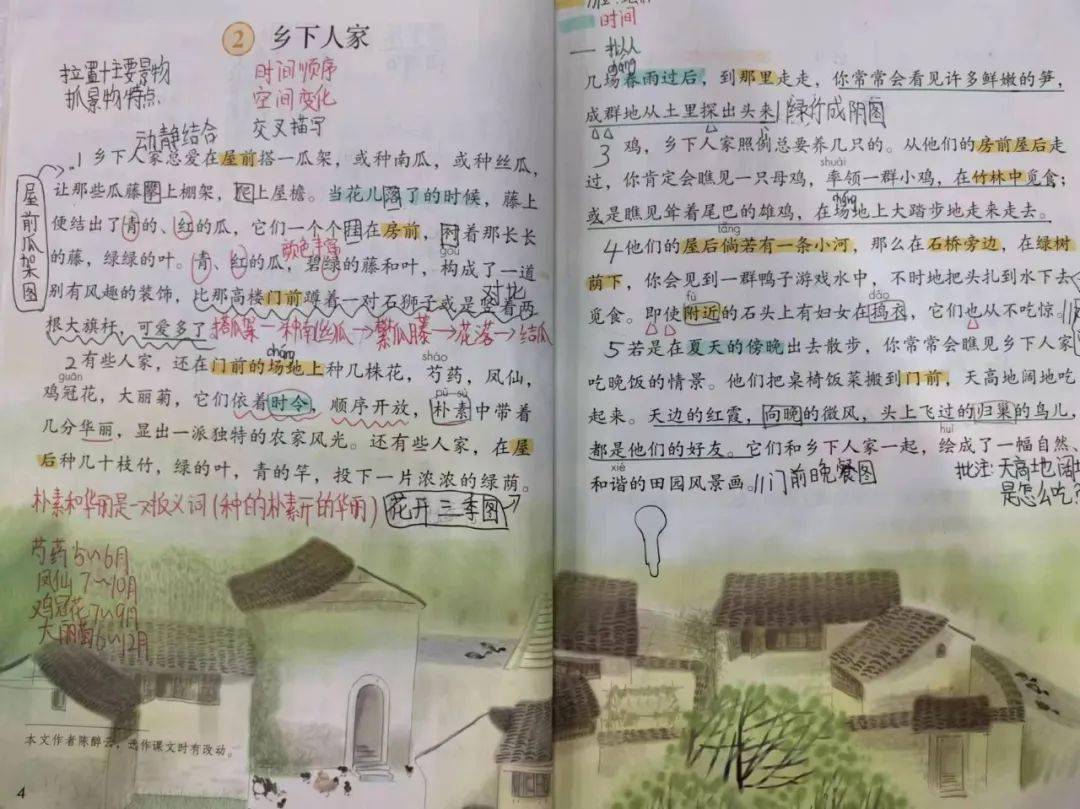 2 乡下人家
位置+主要景物
抓景物特点
时间顺序
空间变化
交叉描写
动静结合
1 乡下人家总爱在屋前搭一瓜架，或种南瓜，或种丝瓜，
让那些瓜藤攀上棚架，爬上屋檐。当花儿落了的时候，藤上
便结出了青的、红的瓜，它们一个个挂在房前，衬着那长长
颜色丰富
gōu
的藤，绿绿的叶。青、红的瓜，碧绿的藤和叶，构成了一道
对比
别有风趣的装饰，比那高楼门前蹲着一对石狮子或是竖着两
根大旗杆，可爱多了。
搭瓜架→种南丝瓜→攀瓜藤→花落→结瓜
屋前瓜架图
cháng
sháo
2 有些人家，还在门前的场地上种几株花，芍药，凤仙，
guān
pǔ sù
鸡冠花，大丽菊，它们依着时令，顺序开放，朴素中带着
几分华丽，显出一派独特的农家风光。还有些人家，在屋
后种几十枝竹，绿的叶，青的竿，投下一片浓浓的绿荫。
朴素和华丽是一对反义词（种的朴素开的华丽）
花开三季图
芍药 5~6月
凤仙 7~10月
鸡冠花 7~9月
大丽菊 6~12月
本文作者陈醉云，选作课文时有改动。
4
时间
拟人
几场春雨过后，到那里走走，你常常会看见许多鲜嫩的笋，
成群地从土里探出头来。
绿竹成阴图
3 鸡，乡下人家照例总要养几只的。从他们的房前屋后走
shuài
过，你肯定会瞧见一只母鸡，率领一群小鸡，在竹林中觅食；
或是瞧见耸着尾巴的雄鸡，在场地上大踏步地走来走去。
tǎng
4 他们的屋后倘若有一条小河，那么在石桥旁边，在绿树
荫下，你会见到一群鸭子游戏水中，不时地把头扎到水下去
fù
dǎo
觅食。即使附近的石头上有妇女在捣衣，它们也从不吃惊。
5 若是在夏天的傍晚出去散步，你常常会瞧见乡下人家
吃晚饭的情景。他们把桌椅饭菜搬到门前，天高地阔地吃
起来。天边的红霞，向晚的微风，头上飞过的归巢的鸟儿，
huì
都是他们的好友。它们和乡下人家一起，绘成了一幅自然、
xié
和谐的田园风景画。
门前晚餐图
批注：天高地阔地
是怎么吃？